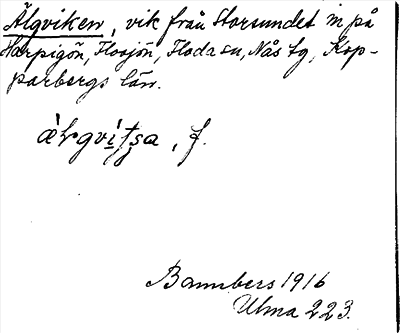 Älgviken, vik från Storsundet in på
Harpigön, Flosjön, Floda sn, Nås tg, Kop-
parbergs län.
æ̀ƚgvít̯ṣa, f.
Bannbers 1916
Ulma 223.